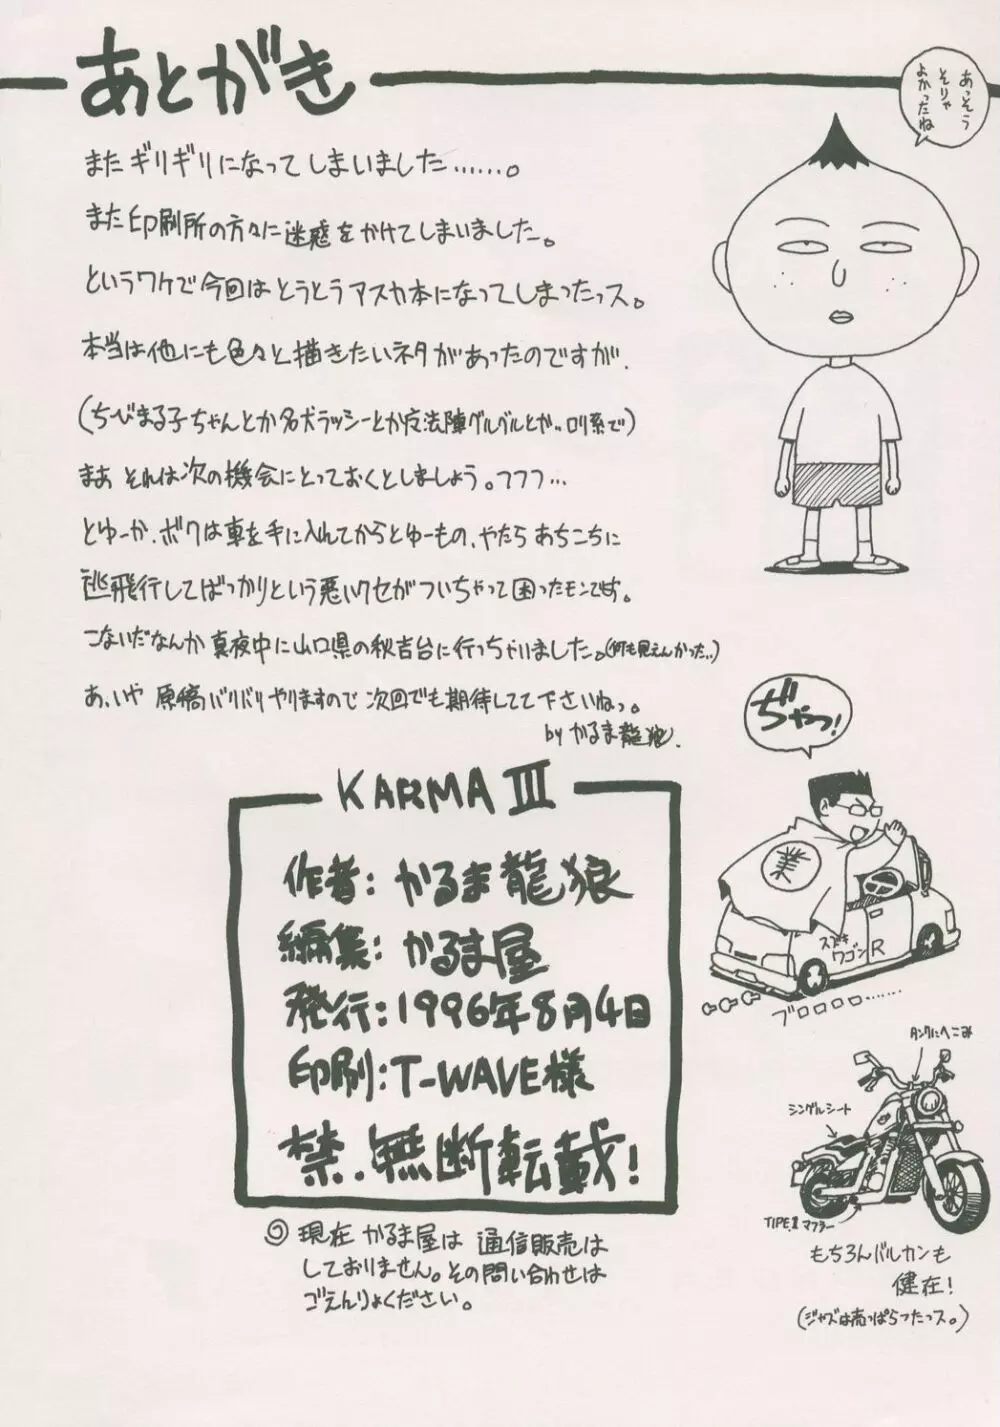 あとがき
あっそう
そりゃ
よかったね
またギリギリになってしまいました……。
また印刷所の方々に迷惑をかけてしまいました。
というワケで今回はとうとうアスカ本になってしまったっス。
本当は他にも色々と描きたいネタがあったのですが、
(ちびまる子ちゃんとか名犬ラッシーとか魔法陣グルグルとか‥ロリ系で)
まあ それは次の機会にとっておくとしましょう。フフフ…
とゆーか、ボクは車を手に入れてからとゆーもの、やたら あちこちに
逃飛行してばっかりという悪いクセがついちゃって困ったモンです。
こないだなんか 真夜中に山口県の秋吉台に行っちゃいました。(何も見えんかった‥)
あ、いや 原稿バリバリやりますので 次回でも期待してて下さいねっ。
by かるま龍狼.
ぢゃっ!
業
スズキ
ワゴンR
ブロロロロ……
KARMA III
作者:かるま龍狼
編集:かるま屋
発行:1996年8月4日
印刷:T-WAVE様
禁.無断転載!
◎現在 かるま屋は 通信販売は
しておりません。その問い合わせは
ごえんりょください。
タンクにへこみ
シングルシート
TYPE.II マフラー
もちろんバルカンも
健在!
(ジャズは売っぱらったっス。)